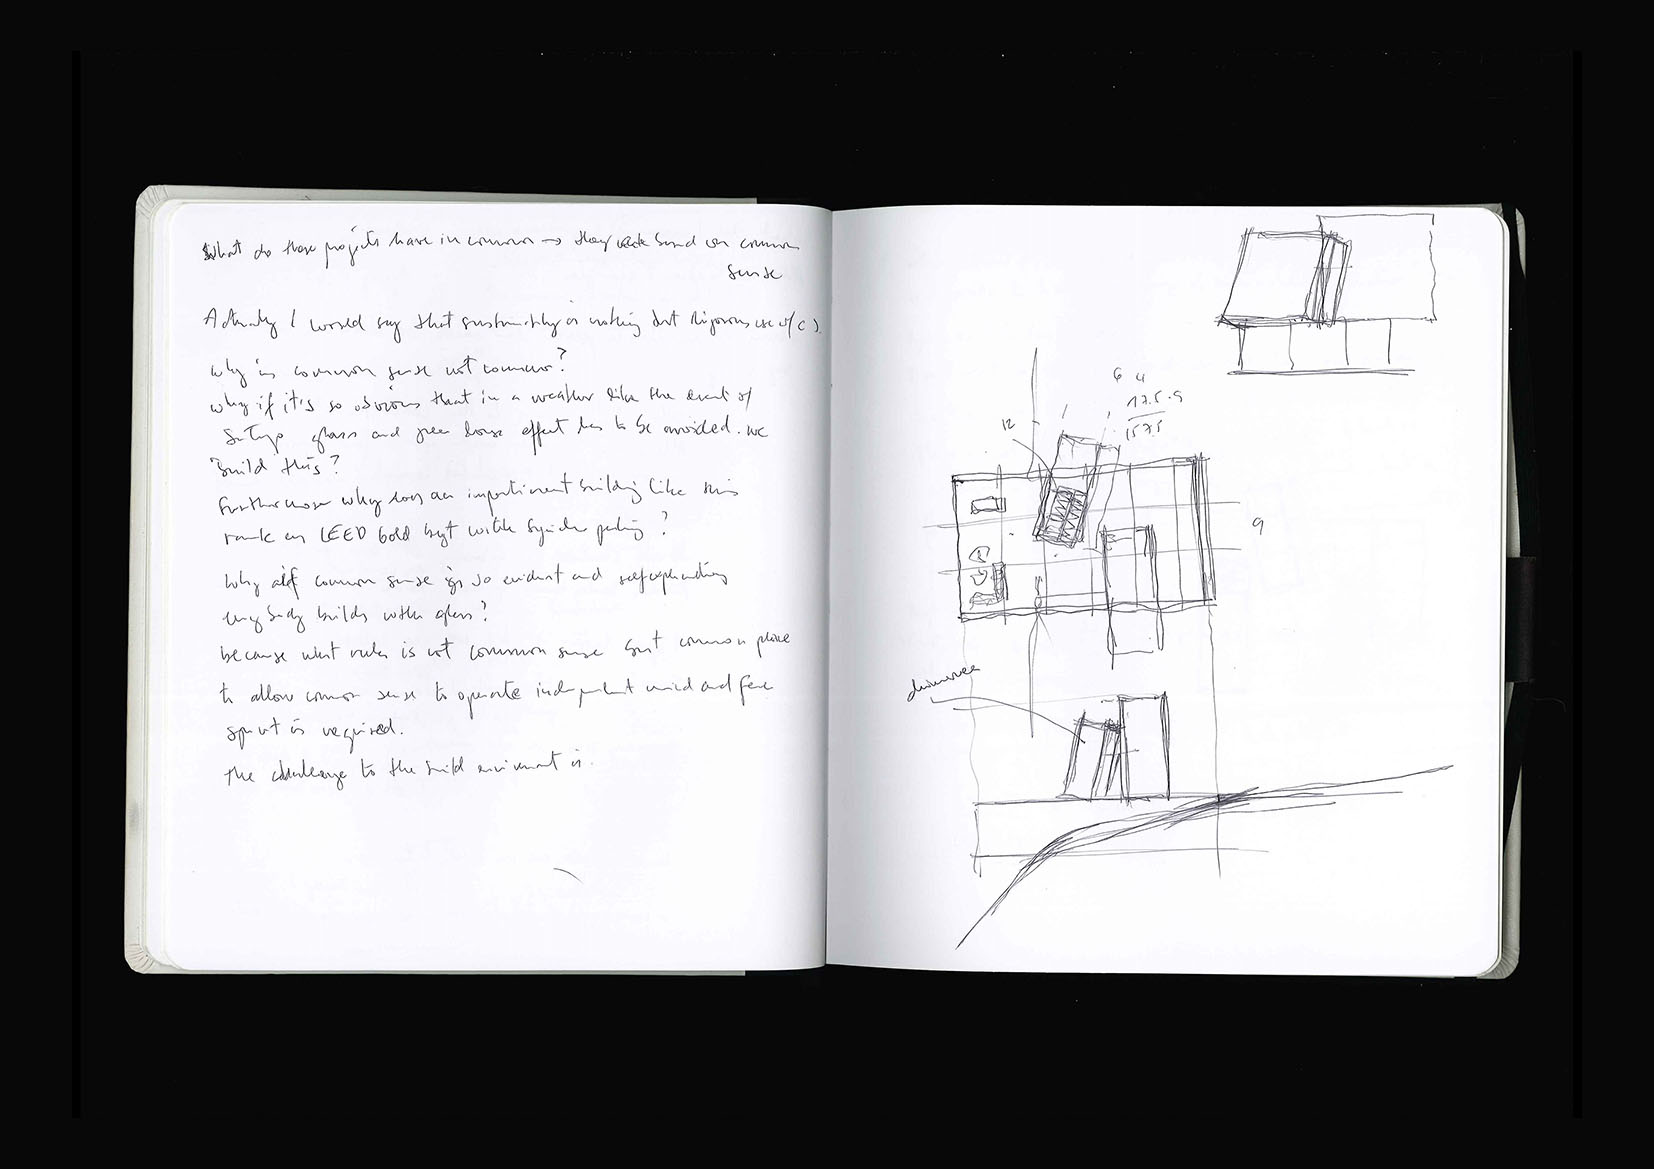 What do these projects have in common → they were based on common
sense
Actually I would say that sustainability is nothing but rigorous use of C S.
why is common sense not common?
why if it's so obvious that in a weather like the event of
glass and green house effect has to be avoided. we
build this?
Furthermore why does an important building like this
rank as LEED Gold
why if common sense is so evident and selfexplanatory
everybody builds with glass?
because what rules is not common sense but common place
to allow common sense to operate independent mind and free
spirit is required.
The challenge to the build enviroment is.
6 4
17.5 . 9
157.5
12
9